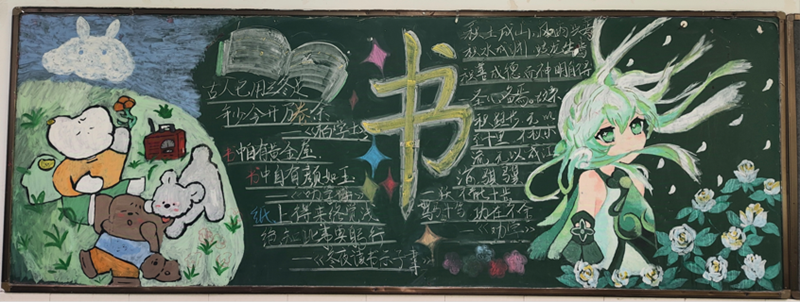 古人已用三冬足
年少今开万卷余
书中自有黄金屋
书中自有颜如玉
纸上得来终觉浅
绝知此事要躬行
——《冬夜读书示子聿》
书
积土成山，风雨兴焉
积水成渊，蛟龙生焉
积善成德，而神明自得
圣心备焉。故不
积跬步，无以
至千里，不积小
流，无以成江
海。骐骥一跃，不能十步
驽马十驾
功在不舍
——《劝学》